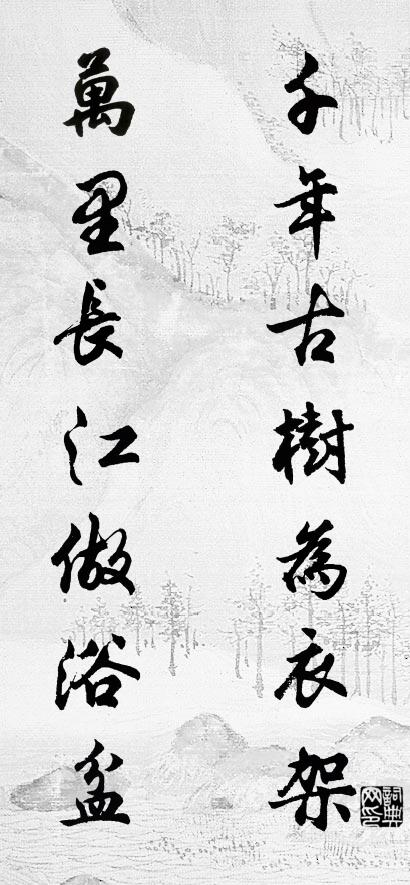 千年古樹為衣架
萬里長江做浴盆